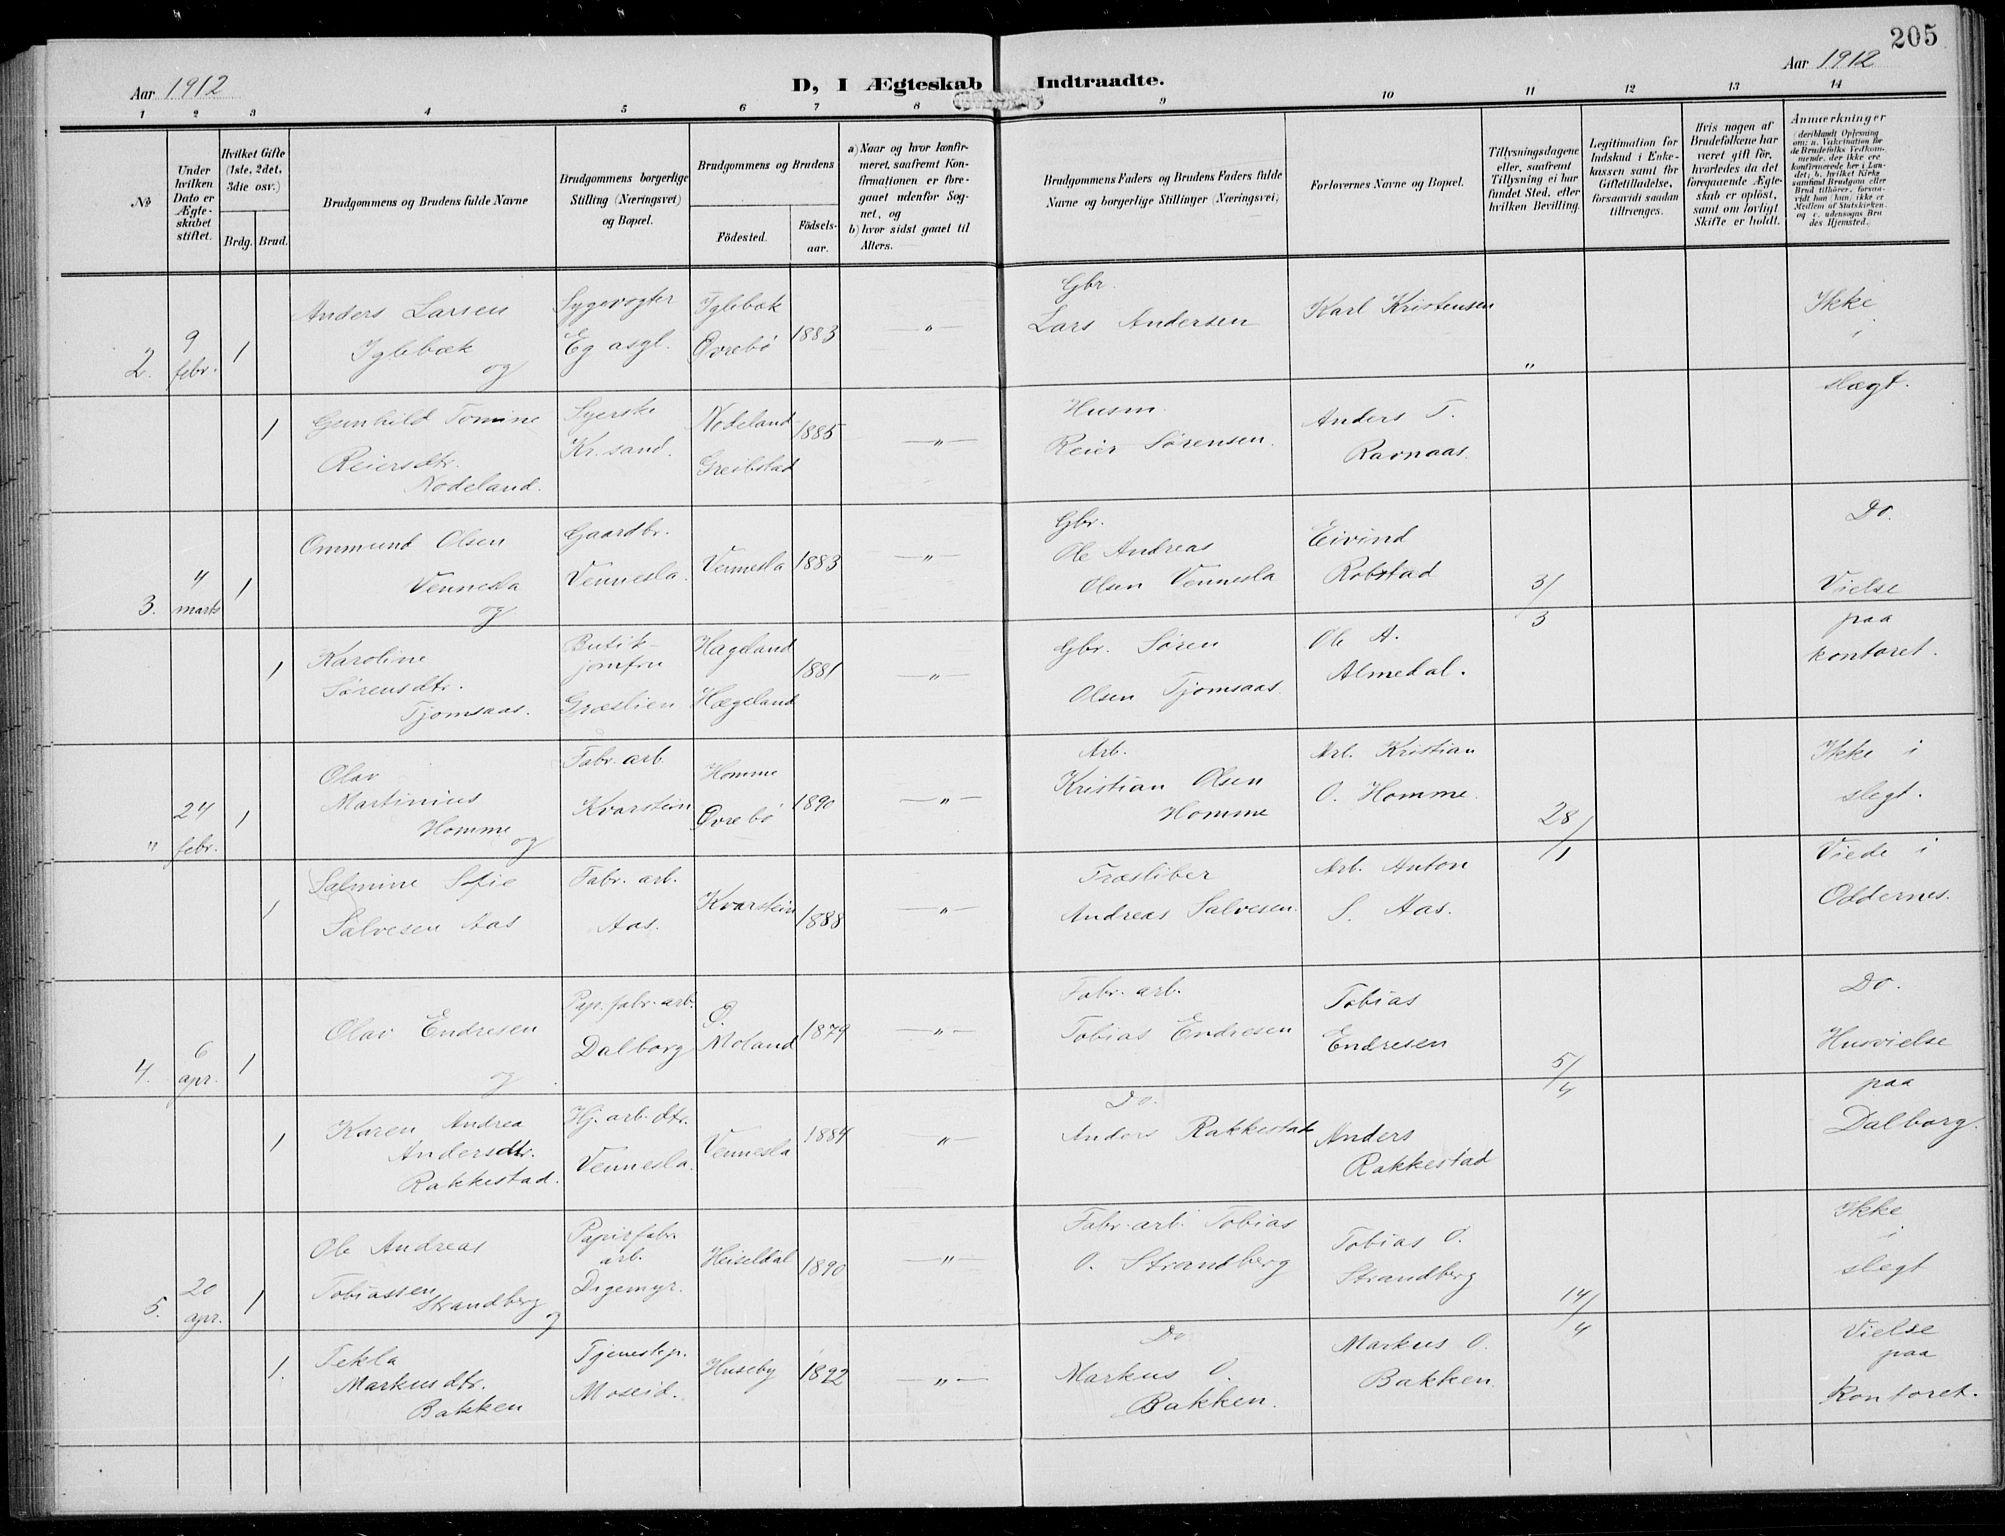 205
Aar 1912
D, I Ægteskab Indtraadte.
Aar 1912
1 2 3 4 5 6 7 8 9 10 11 12 13 14
No
Under hvilken Dato er Ægteskabet stiftet.
Hvilket Gifte (1ste, 2det, 3die osv.)
Brdg. Brud.
Brudgommens og Brudens fulde Navne
Brudgommens borgerlige Stilling (Næringsvei) og Bopæl.
Brudgommens og Brudens
Födested.
Födselsaar.
a) Naar og hvor konfirmeret, saafremt Konfirmationen er foregaaet udenfor Sognet, og
b) hvor sidst gaaet til Alters.
Brudgommens Faders og Brudens Faders fulde Navne og borgerlige Stillinger (Næringsvei)
Forlovernes Navne og Bopæl.
Tillysningsdagene eller, saafremt Tillysning ei har fundet Sted, efter hvilken Bevilling.
Legitimation for Indskud i Enkekassen samt for Giftetilladelse, forsaavidt saadan tiltrænges.
Hvis nogen af Brudefolkene har været gift för, hvorledes da det foregaaende Ægteskab er oplöst, samt om lovligt Skifte er holdt.
Anmærkninger (deriblandt Oplysning om: a. Vakcination for de Brudefolks Vedkommende, der ikke ere konfirmerede her i Landet; b. hvilket Kirkesamfund Brudgom eller Brud tilhører, forsaavidt han (hun) ikke er Medlem af Statskirken, og c. udensogns Brudes Hjemsted.)
2. 9 febr. 1
Anders Larsen
Iglebæk
og
Sygevogter
Eg asyl.
Iglebæk
Øvrebö
1883
"
Gbr.
Lars Andersen
Karl Kristensen
"
Ikke
i
slægt.
1
Gunhild Tomine
Reiersdtr.
Nodeland.
Syerske
Kr.sand.
Nodeland
Greibstad
1885
"
Husm.
Reier Sørensen.
Anders T.
Ravnaas.
3. 4 marts 1
Ommund Olsen
Vennesla
og
Gaardbr.
Vennesla.
Vennesla
1883
"
Gbr.
Ole Andreas
Olsen Vennesla
Eivind
Robstad
3/3
Do.
Vielse
paa
kontoret.
1
Karoline
Sørensdtr.
Tjomsaas.
Butik-
jomfru
Græslien
Hageland
Hægeland
1881
"
Gbr. Søren
Olsen Tjomsaas.
Ole A.
Almedal.
" 24 febr. 1
Olav
Martinius
Homme
og
Fabr. arb.
Kvarstein
Homme
Øvrebö
1890
"
Arb.
Kristian Olsen
Homme
Arb. Kristian
O. Homme.
28/1
Ikke i
slegt.
Viede i
Oddernes.
1
Salmine Sofie
Salvesen Aas
Fabr. arb.
Aas.
Kvarstein
1888
"
Træsliber
Andreas Salvesen.
Arb. Anton
S. Aas.
4. 6 apr. 1
Olav Endresen
og
Pap. fabr. arb.
Dalborg
Ø.
Moland
1879
"
Fabr. arb.
Tobias Endresen
Tobias
Endresen
5/4
Do.
Husvielse
paa
Dalborg.
1
Karen Andrea
Andersdtr.
Rakkestad.
Hj. arb. dtr.
Vennesla.
Vennesla
1884
"
Do.
Anders Rakkestad
Anders
Rakkestad
5. 20 apr. 1
Ole Andreas
Tobiassen
Strandberg
og
Papirfabr.
arb.
Digemyr.
Heiseldal
1890
"
Fabr. arb. Tobias
O. Strandberg
Tobias O.
Strandberg
14/4
Ikke
i
slegt
Vielse
paa
Kontoret.
1.
Tekla
Markusdtr.
Bakken
Tjenestep.
Moseid.
Huseby
1892
"
Do
Markus O.
Bakken.
Markus O.
Bakken.